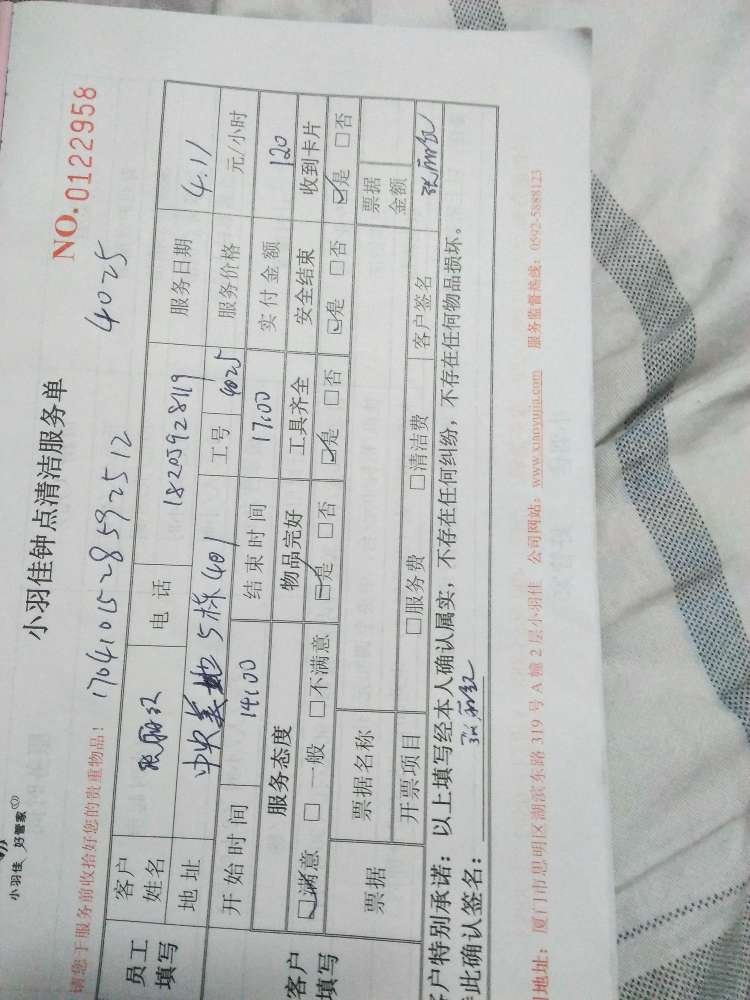 小羽佳 好管家
小羽佳钟点清洁服务单
NO.0122958
请您于服务前收拾好您的贵重物品！ 1704101528592512 4025
员工填写 客户姓名 张丽红 电话 18205928119 服务日期 4.11
地址 中央美地5栋401 工号 4025 服务价格 元/小时
客户填写 开始时间 14:00 结束时间 17:00 实付金额 120
服务态度 物品完好 工具齐全 安全结束 收到卡片
☑满意 □一般 □不满意 ☑是 □否 ☑是 □否 ☑是 □否 ☑是 □否
票据 票据名称 票据金额
开票项目 □服务费 □清洁费 客户签名 张丽红
客户特别承诺：以上填写经本人确认属实，不存在任何纠纷，不存在任何物品损坏。
此确认签名： 张丽红
地址：厦门市思明区湖滨东路319号A幢2层小羽佳 公司网站：www.xiaoyujia.com 服务监督热线：0592-5888123